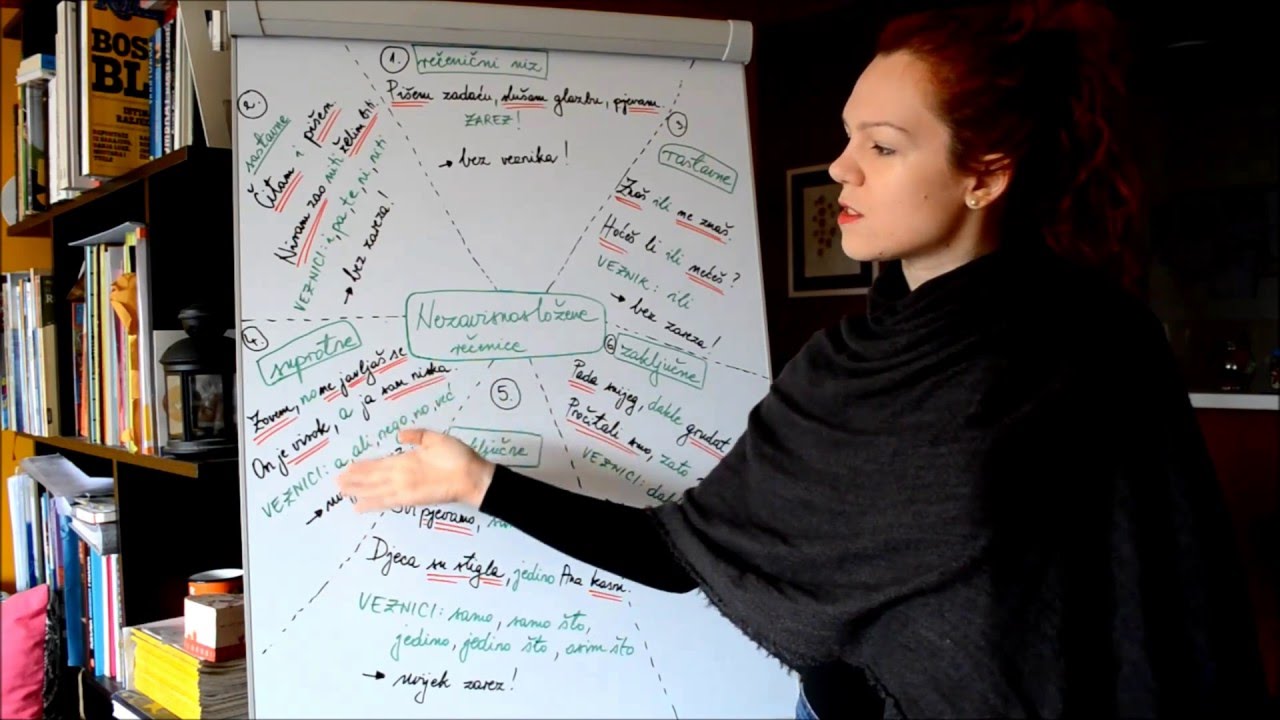 Nezavisnosložene
rečenice
1.
rečenični niz
Pišem zadaću, slušam glazbu, pjevam.
ZAREZ!
→ bez veznika!
2.
sastavne
Čitam i pišem.
Nisam zao niti želim biti
VEZNICI: i, pa, te, ni, niti
→ bez zareza!
3.
rastavne
Znaš ili ne znaš.
Hoćeš li ili nećeš?
VEZNIK: ili
→ bez zareza!
4.
suprotne
Zovem, no ne javljaš se
On je visok, a ja sam niska.
VEZNICI: a, ali, nego, no, već
→
5.
ključne
Svi pjevamo,
Djeca su stigla, jedino Ana kasni.
VEZNICI: samo, samo što,
jedino, jedino što, osim što
→ uvijek zarez!
6
zaključne
Pada snijeg, dakle grudat
Pročitali smo, zato
VEZNICI:
BOS
BL